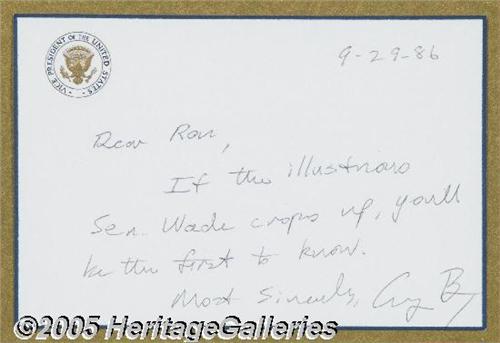 VICE PRESIDENT OF THE UNITED STATES
9-29-86
Dear Ron,
If the illustrious
Sen. Wade crops up, you'll
be the first to know.
Most Sincerely,
©2005 HeritageGalleries